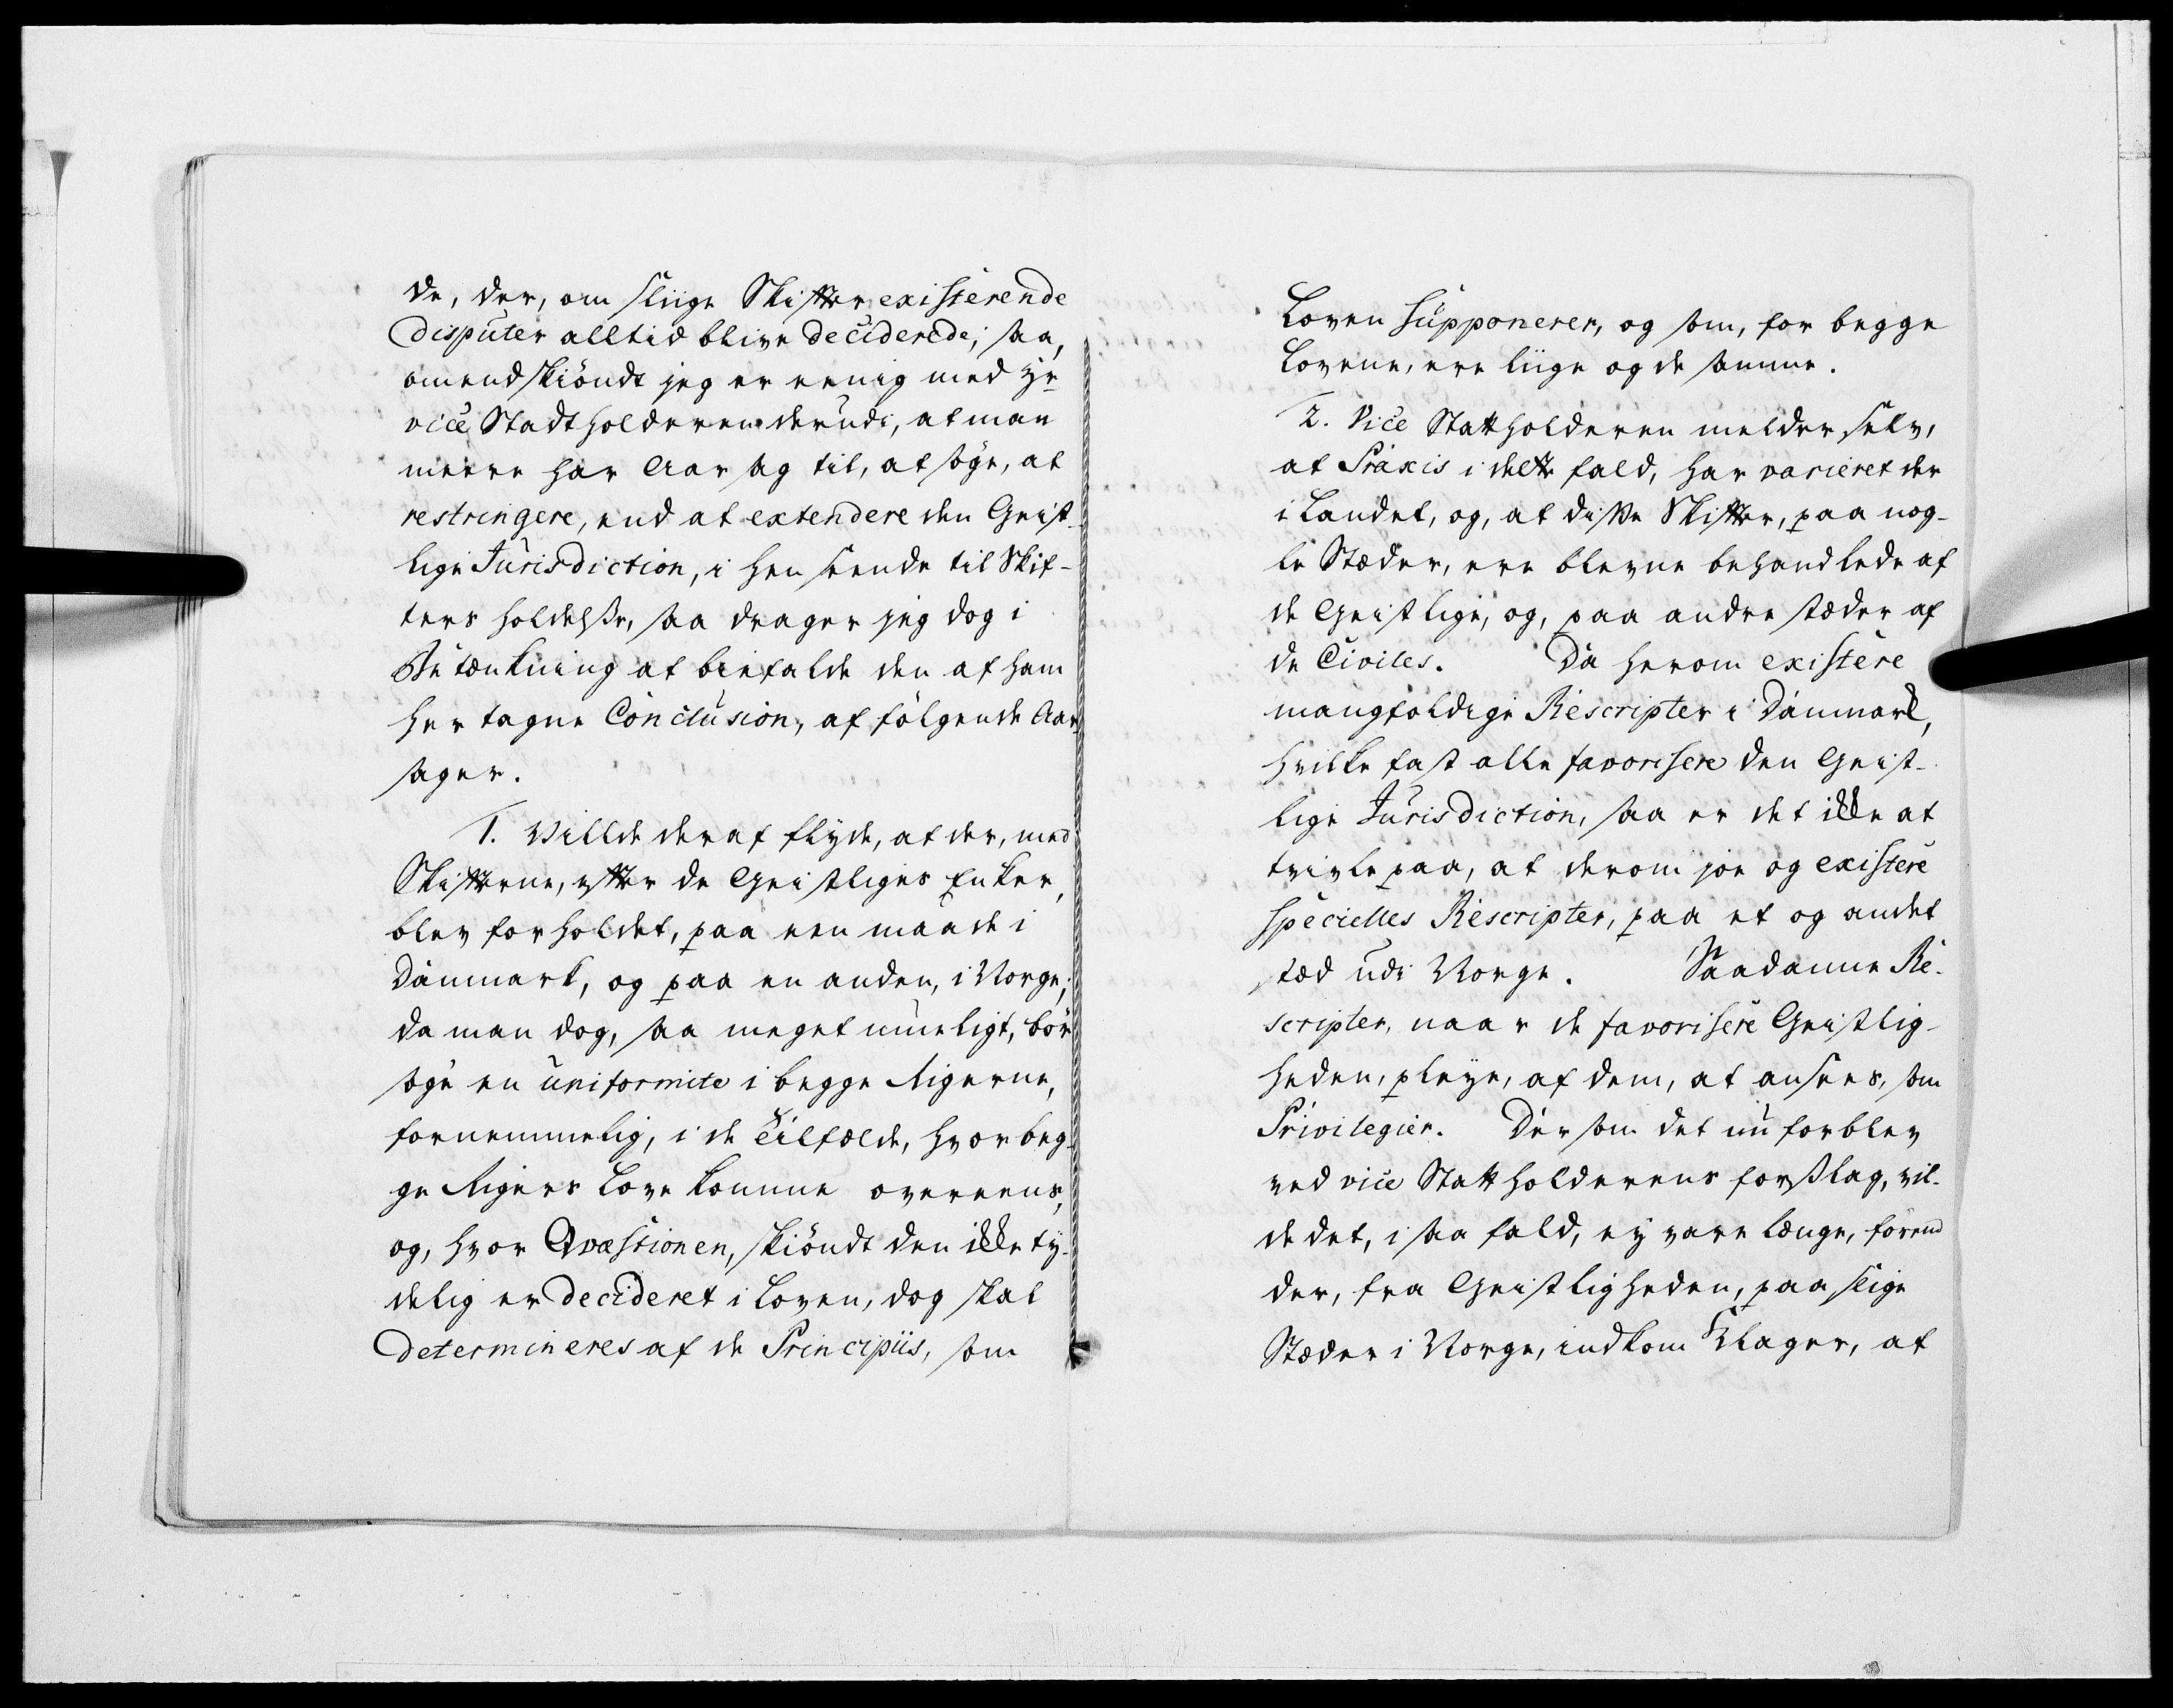 de, der, om sliige Skifter existerende
disputer alltid blive deciderede; saa,
omendskiöndt jeg er eenig med Hr
vice Stadtholderen derudi, at man
meere har Aarsag til, at söge, at
restringere, end at extendere den Geist-
lige Jurisdiction, i henseende til Skif-
ters holdelße, saa drager jeg dog i
Betænkning at biefalde den af ham
her tagne Conclusion, af fölgende Aar-
sager.
1. Villde deraf flyde, at der, med
Skifterne, efter de Geistliges Enker,
blev forholdet, paa een maade i
Danmark, og paa en anden, i Norge;
da man dog, saa meget mueligt, bör
söge en uniformite i begge Rigerne,
fornemmelig, i de Tilfælde, hvor beg-
ge Rigers Love komme overeens,
og, hvor Qvæstionen, skiöndt den ikke ty-
delig er decideret i Loven, dog skal
determineres af de Principiis, som
Loven supponerer, og som, for begge
Lovene, ere liige og de samme.
2. Vice Stattholderen melder selv,
at Praxis i dette fald, har varieret der
i Landet, og, at disse Skifter, paa nog-
le Stæder, ere blevne behandlede af
de Geistlige, og, paa andre stæder af
de Civiles. Da herom existere
mangfoldige Rescripter i Danmark,
hvilke fast alle favorisere den Geist-
lige Jurisdiction, saa er det ikke at
tvivle paa, at derom joe og existere
specielles Rescripter, paa et og andet
stæd udi Norge. Saadanne Re-
scripter, naar de favorisere Geistlig-
heden, pleye, af dem, at ansees, som
Privilegier. Dersom det nu forblev
ved vice Stattholderens forslag, vil-
de det, i saa fald, ey vare længe, förend
der, fra Geistligheden, paa slige
Stæder i Norge, indkom Klager, at